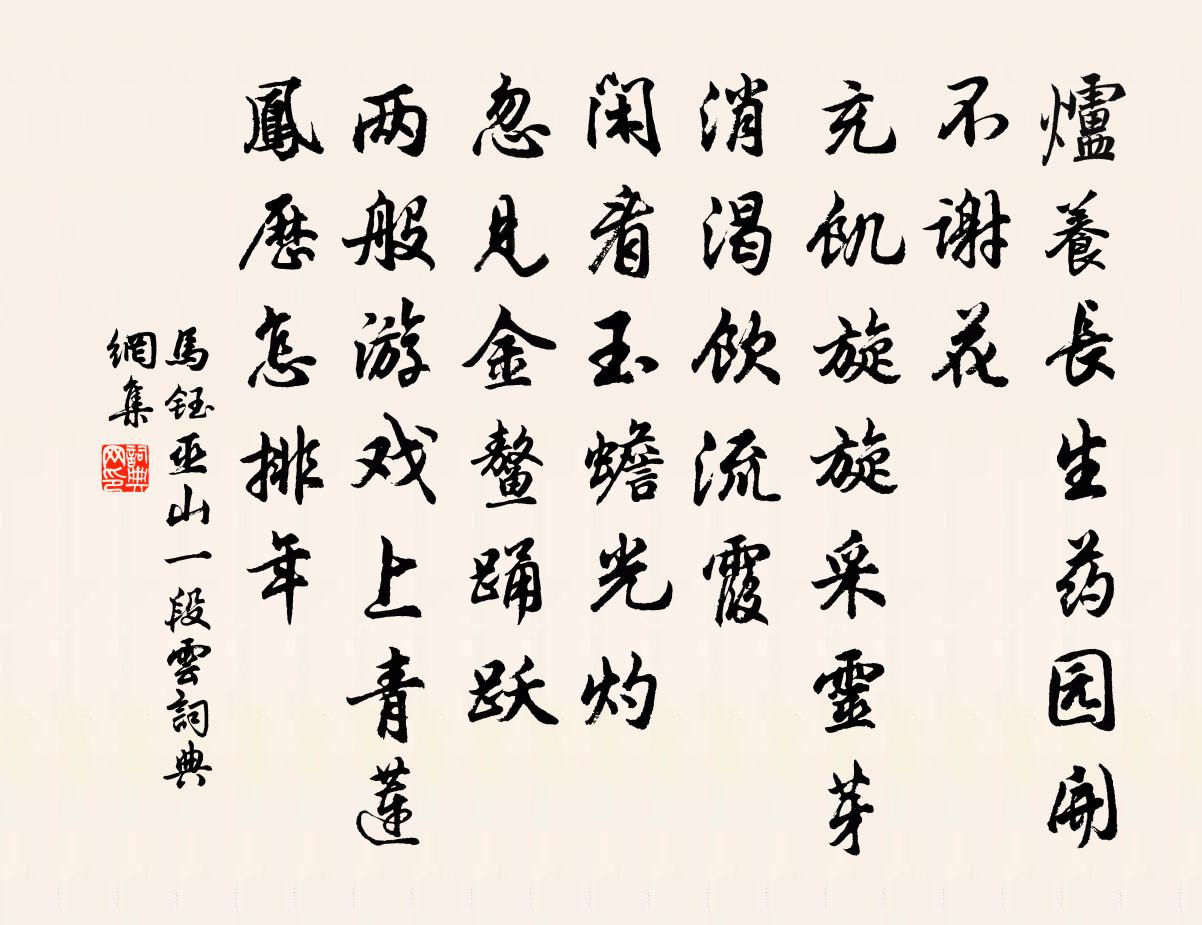 爐養長生药园開
不谢花
充飢旋旋采靈芽
消渴飲流霞
闲看玉蟾光灼
忽见金鳌踊跃
两般游戏上青蓮
鳳歷怎排年
馬鈺巫山一段雲詞典
網集
詞典
网印